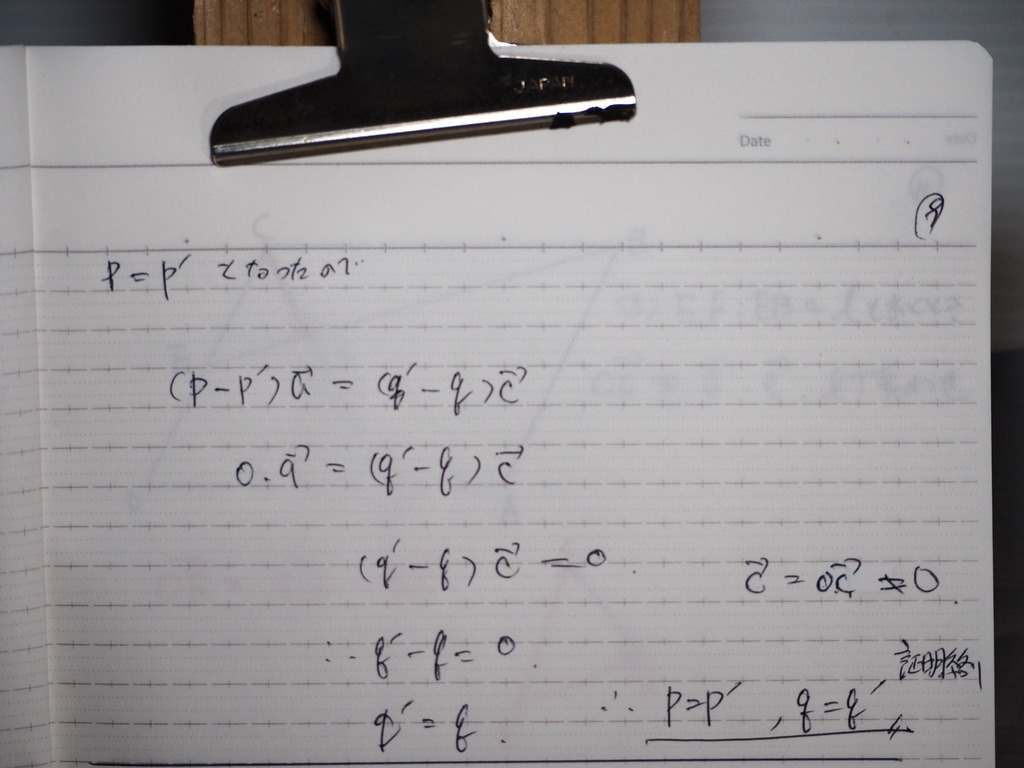 JAPAN
Date
⑨
p = p' となるので..
(p - p')a⃗ = (q' - q)c⃗
0.a⃗ = (q' - q)c⃗
(q' - q)c⃗ = 0.
c⃗ = oc⃗ ≠ 0.
∴ q' - q = 0.
q' = q.
∴ p = p', q = q'
証明終り